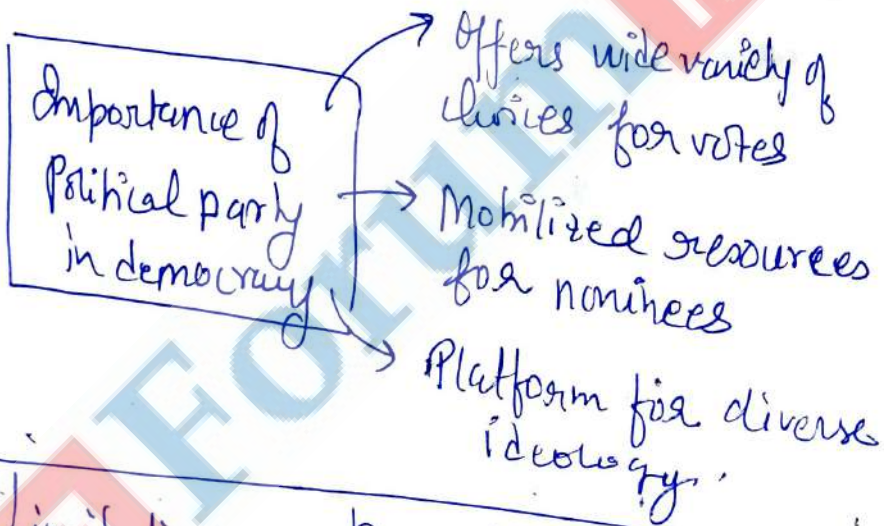 Importance of
Political party
in democracy
Offers wide variety of
choices for votes
Mobilized resources
for nominees
Platform for diverse
ideology.
Forum